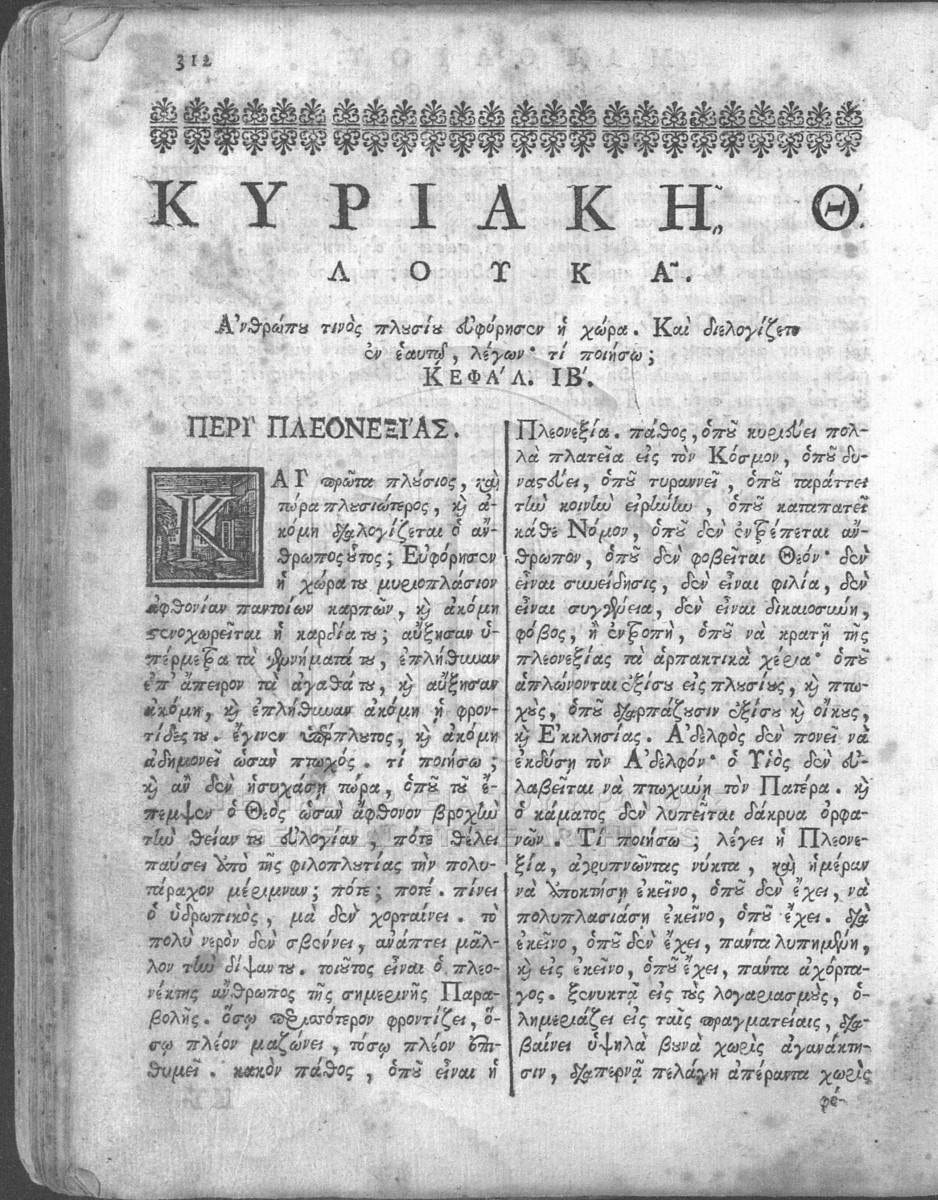 312
ΚΥΡΙΑΚῌ͂ Θ΄.
ΛΟΥΚΑ͂.
Ἀνθρώπου τινὸς πλουσίου εὐφόρησεν ἡ χώρα. Καὶ διελογίζετο
ἐν ἑαυτῷ, λέγων· τί ποιήσω;
ΚΕΦΑ΄Λ. ΙΒ΄.
ΠΕΡΙ` ΠΛΕΟΝΕΞΙ΄ΑΣ.
ΚΑΙ` πρῶτα πλούσιος, καὶ
τώρα πλουσιώτερος, καὶ ἀ-
κόμη διαλογίζεται ὁ ἄν-
θρωπος οὗτος; Εὐφόρησεν
ἡ χώρα του μυριοπλάσιον
ἀφθονίαν παντοίων καρπῶν, καὶ ἀκόμη
στενοχωρεῖται ἡ καρδία του; αὔξησαν ὑ-
πέρμετρα τὰ γεννήματά του, ἐπλήθυναν
ἐπ' ἄπειρον τὰ ἀγαθά του, καὶ αὔξησαν
ἀκόμη, καὶ ἐπλήθυναν ἀκόμη ἡ φρον-
τίδες του. ἔγινεν ὑπέρπλουτος, καὶ ἀκόμη
ἀδημονεῖ ὡσὰν πτωχός. τί ποιήσω;
καὶ ἂν δὲν ἡσυχάσῃ τώρα, ὁποῦ τοῦ ἔ-
πεμψεν ὁ Θεὸς ὡσὰν ἄφθονον βροχὴν
τὴν θείαν του εὐλογίαν, πότε θέλει
παύσει ἀπὸ τῆς φιλοπλουτίας τὴν πολυ-
τάραχον μέριμναν; πότε; ποτέ. πίνει
ὁ ὑδρωπικὸς, μὰ δὲν χορταίνει. τὸ
πολὺ νερὸν δὲν σβεννει, ἀνάπτει μᾶλ-
λον τὴν δίψαν του. τοιοῦτος εἶναι ὁ πλεο-
νέκτης ἄνθρωπος τῆς σημερινῆς Παρα-
βολῆς. ὅσῳ περισσότερον φροντίζει, ὅ-
σῳ πλέον μαζώνει, τόσῳ πλέον ἐπι-
θυμεῖ. κακὸν πάθος, ὁποῦ εἶναι ἡ
Πλεονεξία. πάθος, ὁποῦ κυριεύει πολ-
λὰ πλατεῖα εἰς τὸν Κόσμον, ὁποῦ δυ-
ναστεύει, ὁποῦ τυραννεῖ, ὁποῦ ταράττει
τὴν κοινὴν εἰρήνην, ὁποῦ καταπατεῖ
κάθε Νόμον, ὁποῦ δὲν ἐντρέπεται ἄν-
θρωπον, ὁποῦ δὲν φοβεῖται Θεόν· δὲν
εἶναι συνείδησις, δὲν εἶναι φιλία, δὲν
εἶναι συγγένεια, δὲν εἶναι δικαιοσύνη,
φόβος, ἢ ἐντροπὴ, ὁποῦ νὰ κρατῇ τῆς
πλεονεξίας τὰ ἁρπακτικὰ χέρια· ὁποῦ
ἁπλώνονται ἐξίσου εἰς πλουσίους, καὶ πτω-
χοὺς, ὁποῦ διαρπάζουσιν ἐξίσου καὶ οἴκους,
καὶ Ἐκκλησίας. Ἀδελφὸς δὲν πονεῖ νὰ
ἐκδύσῃ τὸν Ἀδελφόν· ὁ Υἱὸς δὲν εὐ-
λαβεῖται νὰ πτωχύνῃ τὸν Πατέρα. καὶ
ὁ κάματος δὲν λυπεῖται δάκρυα ὀρφα-
νῶν. Τί ποιήσω; λέγει ἡ Πλεονε-
ξία, ἀγρυπνῶντας νύκτα, καὶ ἡμέραν
νὰ ἀποκτήσῃ ἐκεῖνο, ὁποῦ δὲν ἔχει, νὰ
πολυπλασιάσῃ ἐκεῖνο, ὁποῦ ἔχει. διὰ
ἐκεῖνο, ὁποῦ δὲν ἔχει, πάντα λυπημένη,
καὶ εἰς ἐκεῖνο, ὁποῦ ἔχει, πάντα ἀχόρτα-
γος. ξενυκτᾷ εἰς τοὺς λογαριασμοὺς, ὁ-
λημεριάζει εἰς ταῖς πραγματείαις, δια-
βαίνει ὑψηλὰ βουνὰ χωρὶς ἀγανάκτη-
σιν, διαπερνᾷ πελάγη ἀπέραντα χωρὶς
φό-